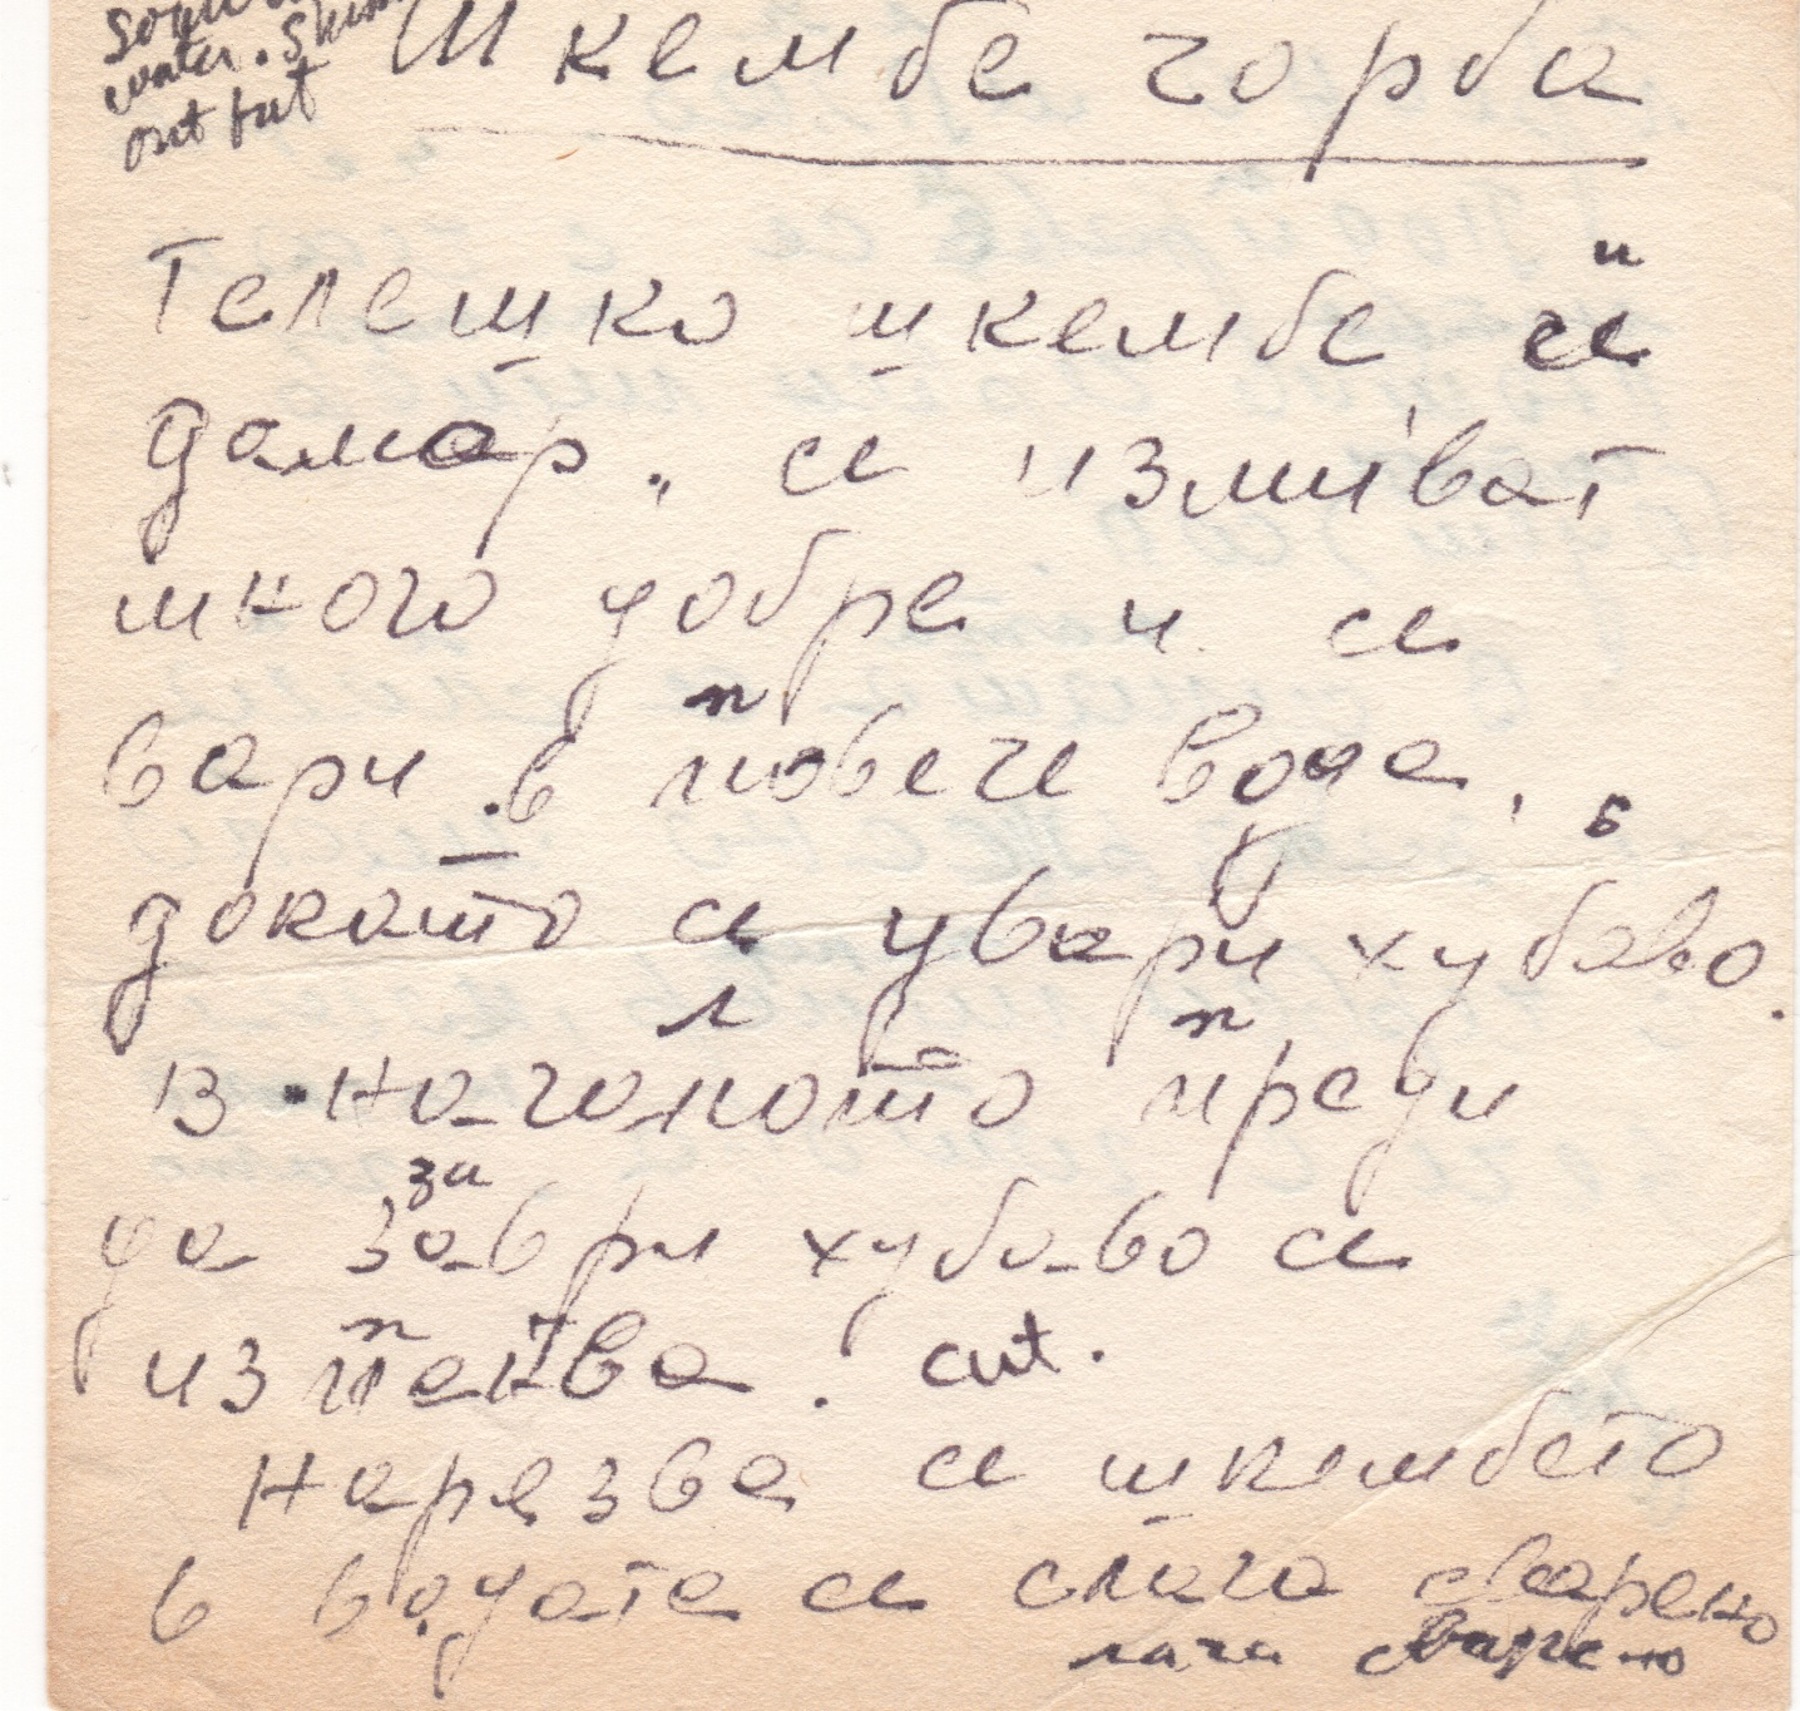 water. Skim
out fat
Шкембе чорба
и
Телешко шкембе се
дамар, се измиват
много добре и се
п
вари в повече вода,
в
докато се увари хубаво.
л п
В началото преди
за
да заври хубаво се
п
изпенва. cut.
Нарязва се шкембето
в водата се слага сварено
лага сварено